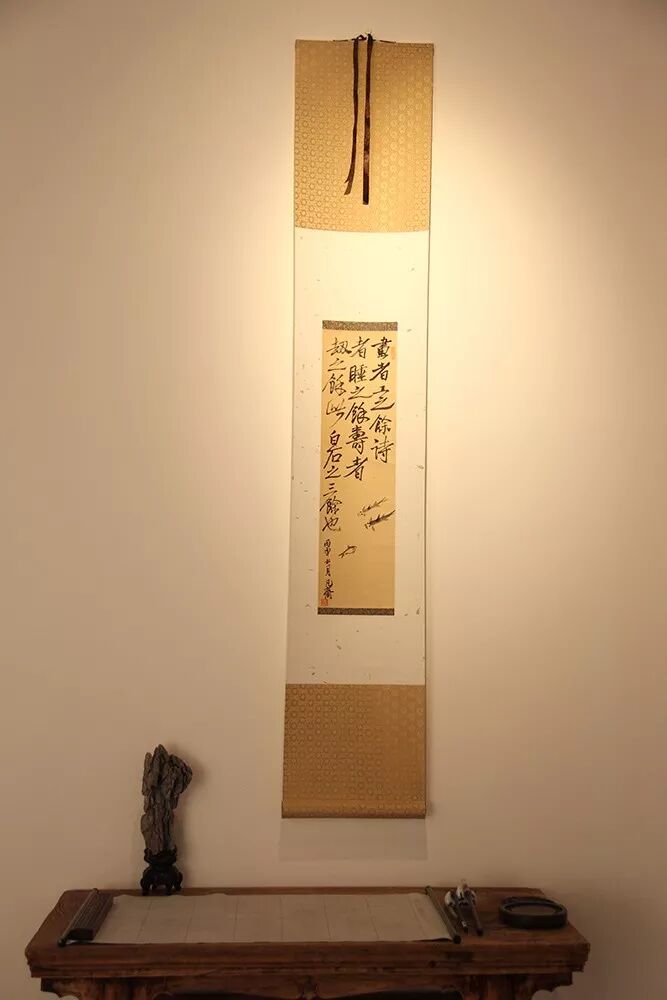 畫者工之餘诗
者睡之餘壽者
劫之餘此白石之三餘也
丙申